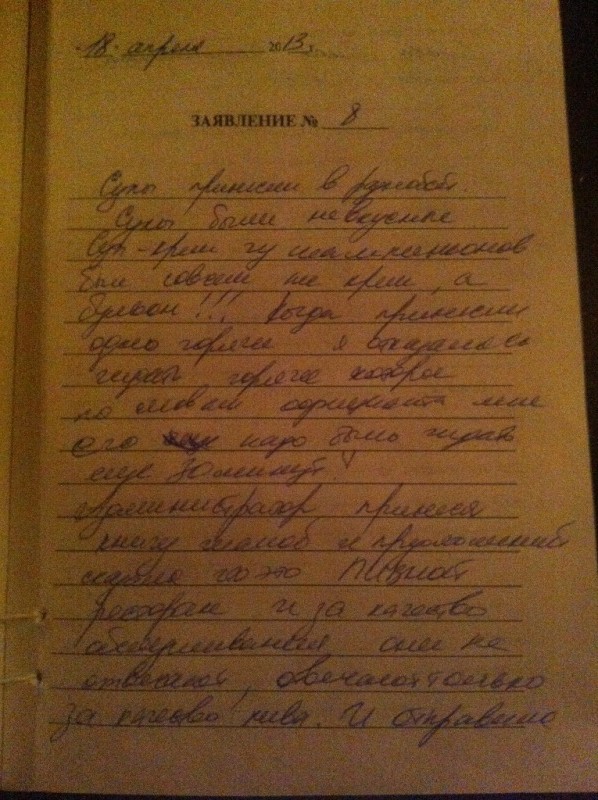 18 апреля 2013 г.
ЗАЯВЛЕНИЕ № 8
Супы принесли в
Супы были невкусные
Суп-крем из шампиньонов
был совсем не крем, а
бульон!!! Когда принесли
одно горячее я отказалась
ждать горячее которое
по словам официанта мне
его надо было ждать
еще 30 минут!
Администратор принеся
книгу жалоб и предложений
сказала что это ПИВНОЙ
ресторан и за качество
обслуживания они не
отвечают, отвечают только
за качество пива. И отправила